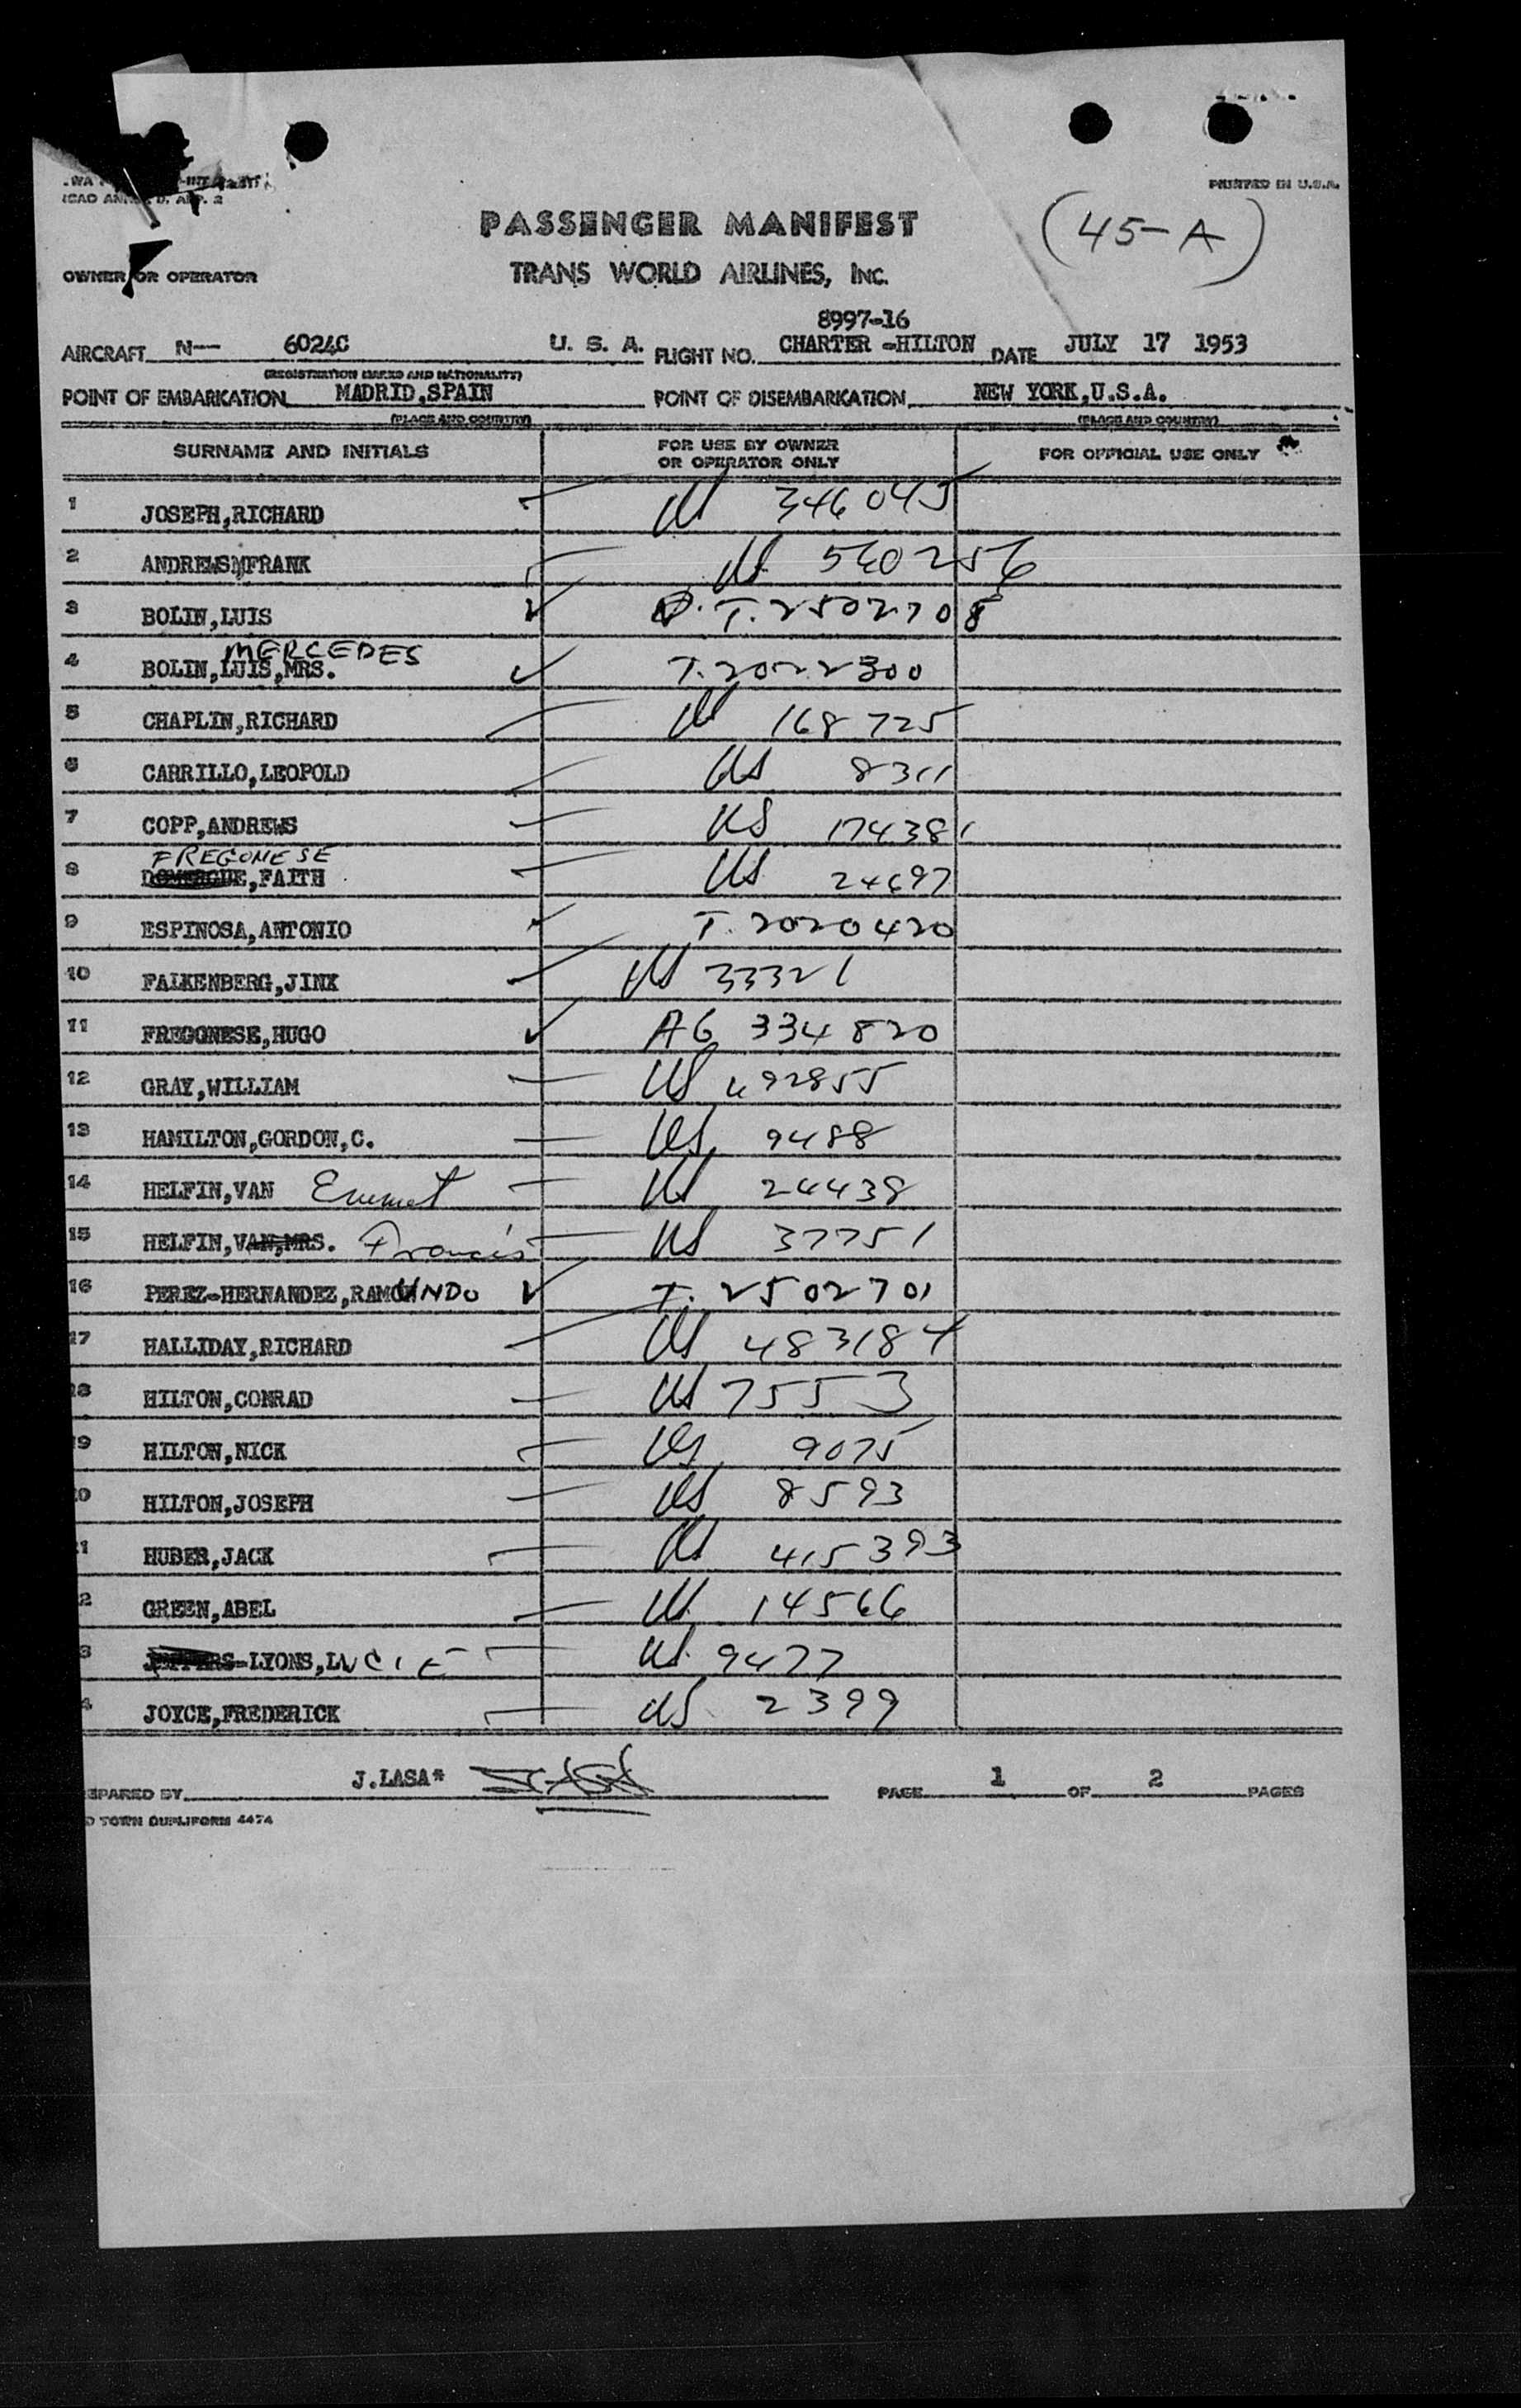 ICAO ANNEX 9, APP. 2
PRINTED IN U.S.A.
PASSENGER MANIFEST
(45-A)
OWNER OR OPERATOR
TRANS WORLD AIRLINES, INC.
8997-16
AIRCRAFT N-- 6024C U. S. A. FLIGHT NO. CHARTER -HILTON DATE JULY 17 1953
(REGISTRATION MARKS AND NATIONALITY)
POINT OF EMBARKATION MADRID,SPAIN POINT OF DISEMBARKATION NEW YORK,U.S.A.
(PLACE AND COUNTRY) (PLACE AND COUNTRY)
SURNAME AND INITIALS FOR USE BY OWNER OR OPERATOR ONLY FOR OFFICIAL USE ONLY
1 JOSEPH,RICHARD US 346045
2 ANDREWS,FRANK US 560256
3 BOLIN,LUIS D.T.2502708
MERCEDES
4 BOLIN,LUIS,MRS. T.2022300
5 CHAPLIN,RICHARD US 168725
6 CARRILLO,LEOPOLD US 8311
7 COPP,ANDREWS US 174381
FREGONESE
8 DOMERGUE,FAITH US 24697
9 ESPINOSA,ANTONIO T.2020420
10 FALKENBERG,JINX US 33321
11 FREGONESE,HUGO AG 334820
12 GRAY,WILLIAM US 492855
13 HAMILTON,GORDON,C. US 9488
14 HELFIN,VAN Emmet US 24438
15 HELFIN,VAN,MRS. Francis US 37751
16 PEREZ-HERNANDEZ,RAMOUNDO T.2502701
17 HALLIDAY,RICHARD US 483184
18 HILTON,CONRAD US 7553
9 HILTON,NICK US 9075
0 HILTON,JOSEPH US 8593
1 HUBER,JACK US 415393
2 GREEN,ABEL US 14566
3 JEFFERS-LYONS,LUCIE US 9477
4 JOYCE,FREDERICK US 2399
EPARED BY J.LASA* PAGE 1 OF 2 PAGES
D TOWN DUPLIFORM 4474